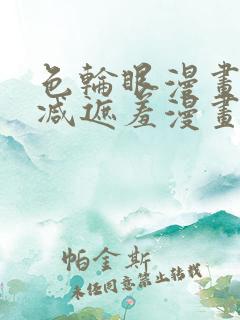 色輪眼漫畫
減遮羞漫畫
帕金斯
未經同意禁止轉載